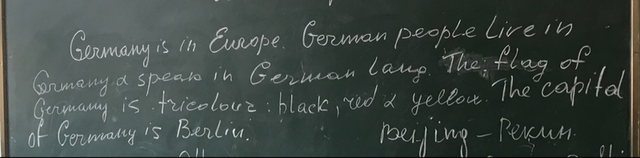 Germany is in Europe. German people live in
Germany & speak in German lang. The flag of
Germany is tricolour: black, red & yellow. The capital
of Germany is Berlin. Beijing – Пекин.